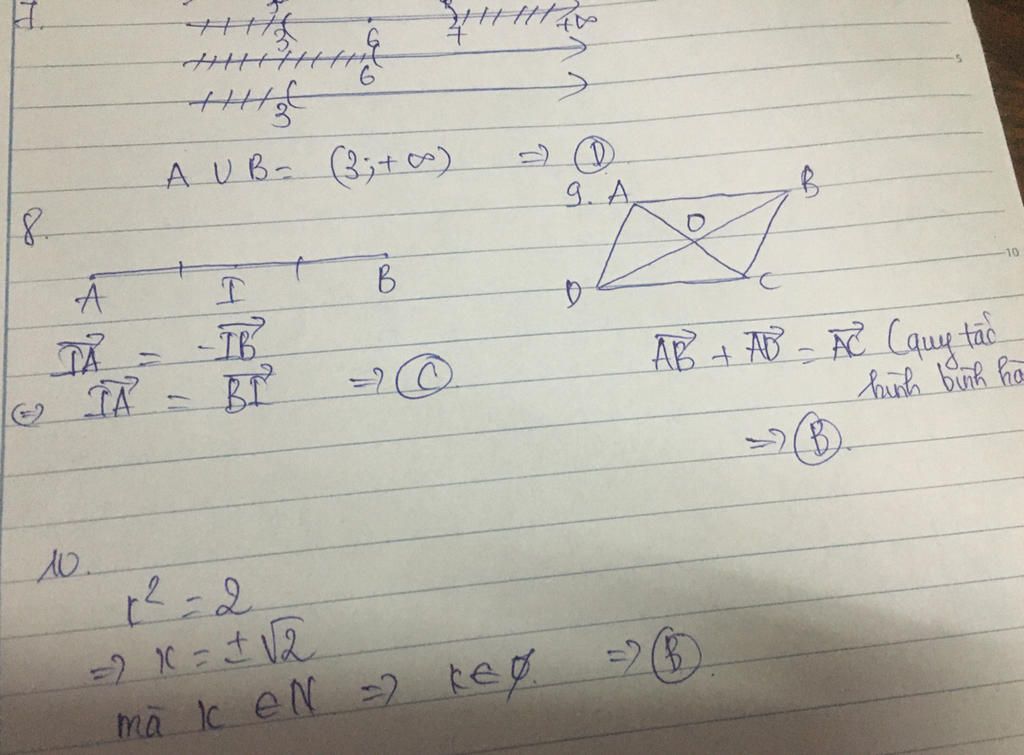 7.
3 6 7 +∞
6
3
A ∪ B = (3; +∞) => D
8.
A I B
IA = -IB
<=> IA = BI => C
9. A B
O
D C
AB + AD = AC (quy tắc
hình bình hà
=> B.
10.
x² = 2
=> x = ±√2
mà x ∈ N => x ∈ ∅. => B
5
10